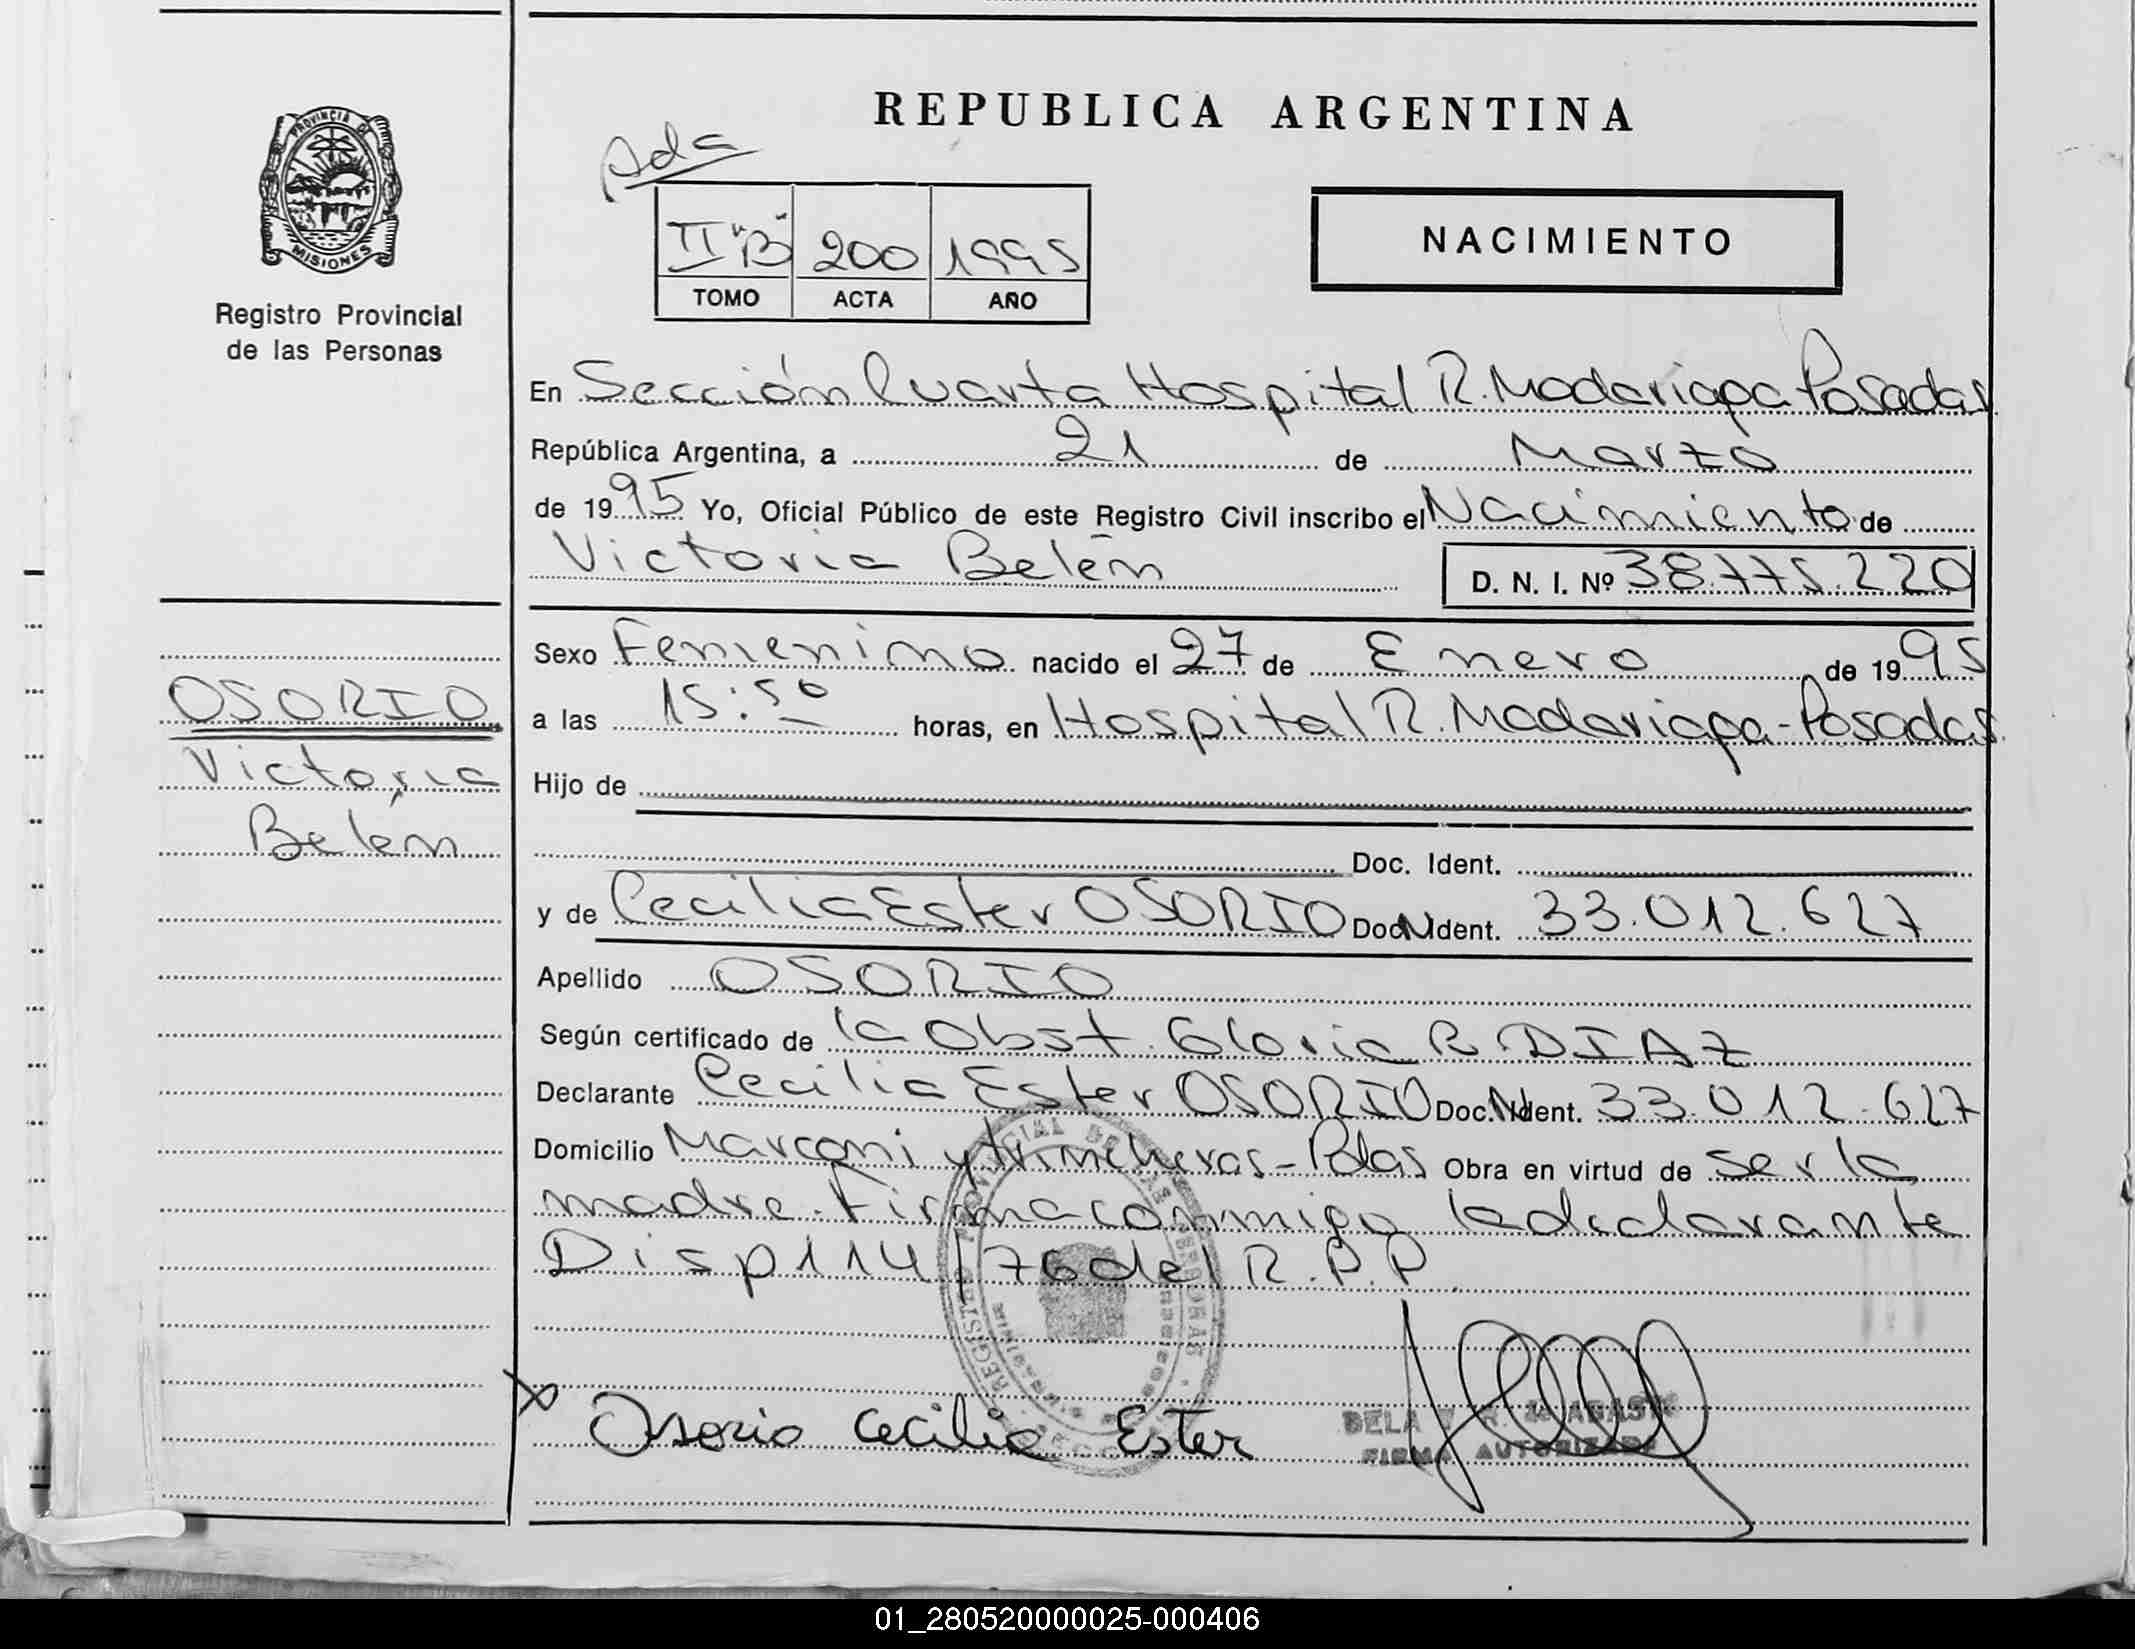 REPUBLICA ARGENTINA
PROVINCIA DE
MISIONES
Registro Provincial
de las Personas
II "B" 200 1995
TOMO ACTA AÑO
NACIMIENTO
En Sección Cuarta Hospital R. Madariaga Posadas
República Argentina, a 21 de Marzo
de 1995 Yo, Oficial Público de este Registro Civil inscribo el Nacimiento de
Victoria Belén D. N. I. Nº 38.775.220
Sexo Femenino nacido el 27 de Enero de 1995
OSORIO
Victoria
Belén
a las 15:50 horas, en Hospital R. Madariaga - Posadas
Hijo de
Doc. Ident.
y de Cecilia Ester OSORIO Doc. N Ident. 33.012.627
Apellido OSORIO
Según certificado de la Obst. Gloria R. DIAZ
Declarante Cecilia Ester OSORIO Doc. N Ident. 33.012.627
Domicilio Marconi y trincheras - Pdas Obra en virtud de ser la
madre. Firma conmigo la declarante
Disp 114/76 del R.P.P.
X Osorio Cecilia Ester
FIRMA AUTORIZADA
01_280520000025-000406